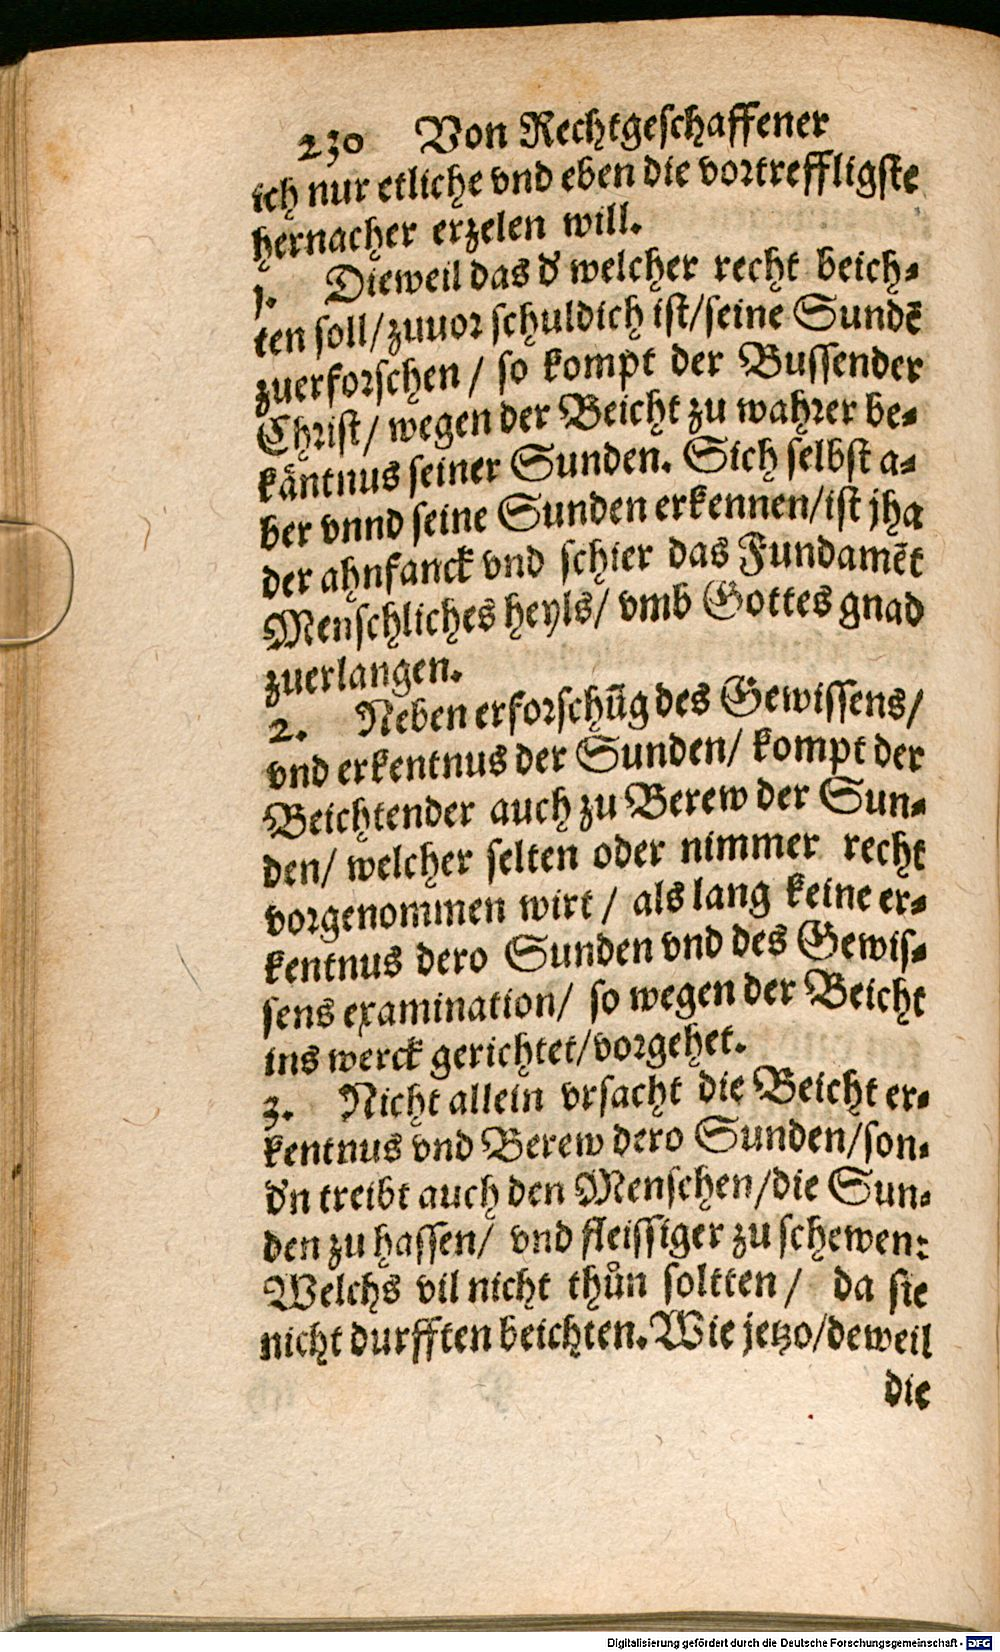 230 Von Rechtgeschaffener
ich nur etliche vnd eben die vortreffligste
hernacher erzelen will.
1. Dieweil das d' welcher recht beich-
ten soll/zuuor schuldich ist/seine Sundē
zuerforschen / so kompt der Bussender
Christ/ wegen der Beicht zu wahrer be-
käntnus seiner Sunden. Sich selbst a-
ber vnnd seine Sunden erkennen/ist jha
der ahnfanck vnd schier das Fundamēt
Menschliches heyls/ vmb Gottes gnad
zuerlangen.
2. Neben erforschūg des Gewissens/
vnd erkentnus der Sunden/ kompt der
Beichtender auch zu Berew der Sun-
den/ welcher selten oder nimmer recht
vorgenommen wirt / als lang keine er-
kentnus dero Sunden vnd des Gewis-
sens examination/ so wegen der Beicht
ins werck gerichtet/vorgehet.
3. Nicht allein vrsacht die Beicht er-
kentnus vnd Berew dero Sunden/son-
d'n treibt auch den Menschen/die Sun-
den zu hassen/ vnd fleissiger zu schewen:
Welchs vil nicht thůn soltten / da sie
nicht durfften beichten. Wie jetzo/deweil
die
Digitalisierung gefördert durch die Deutsche Forschungsgemeinschaft - DFG